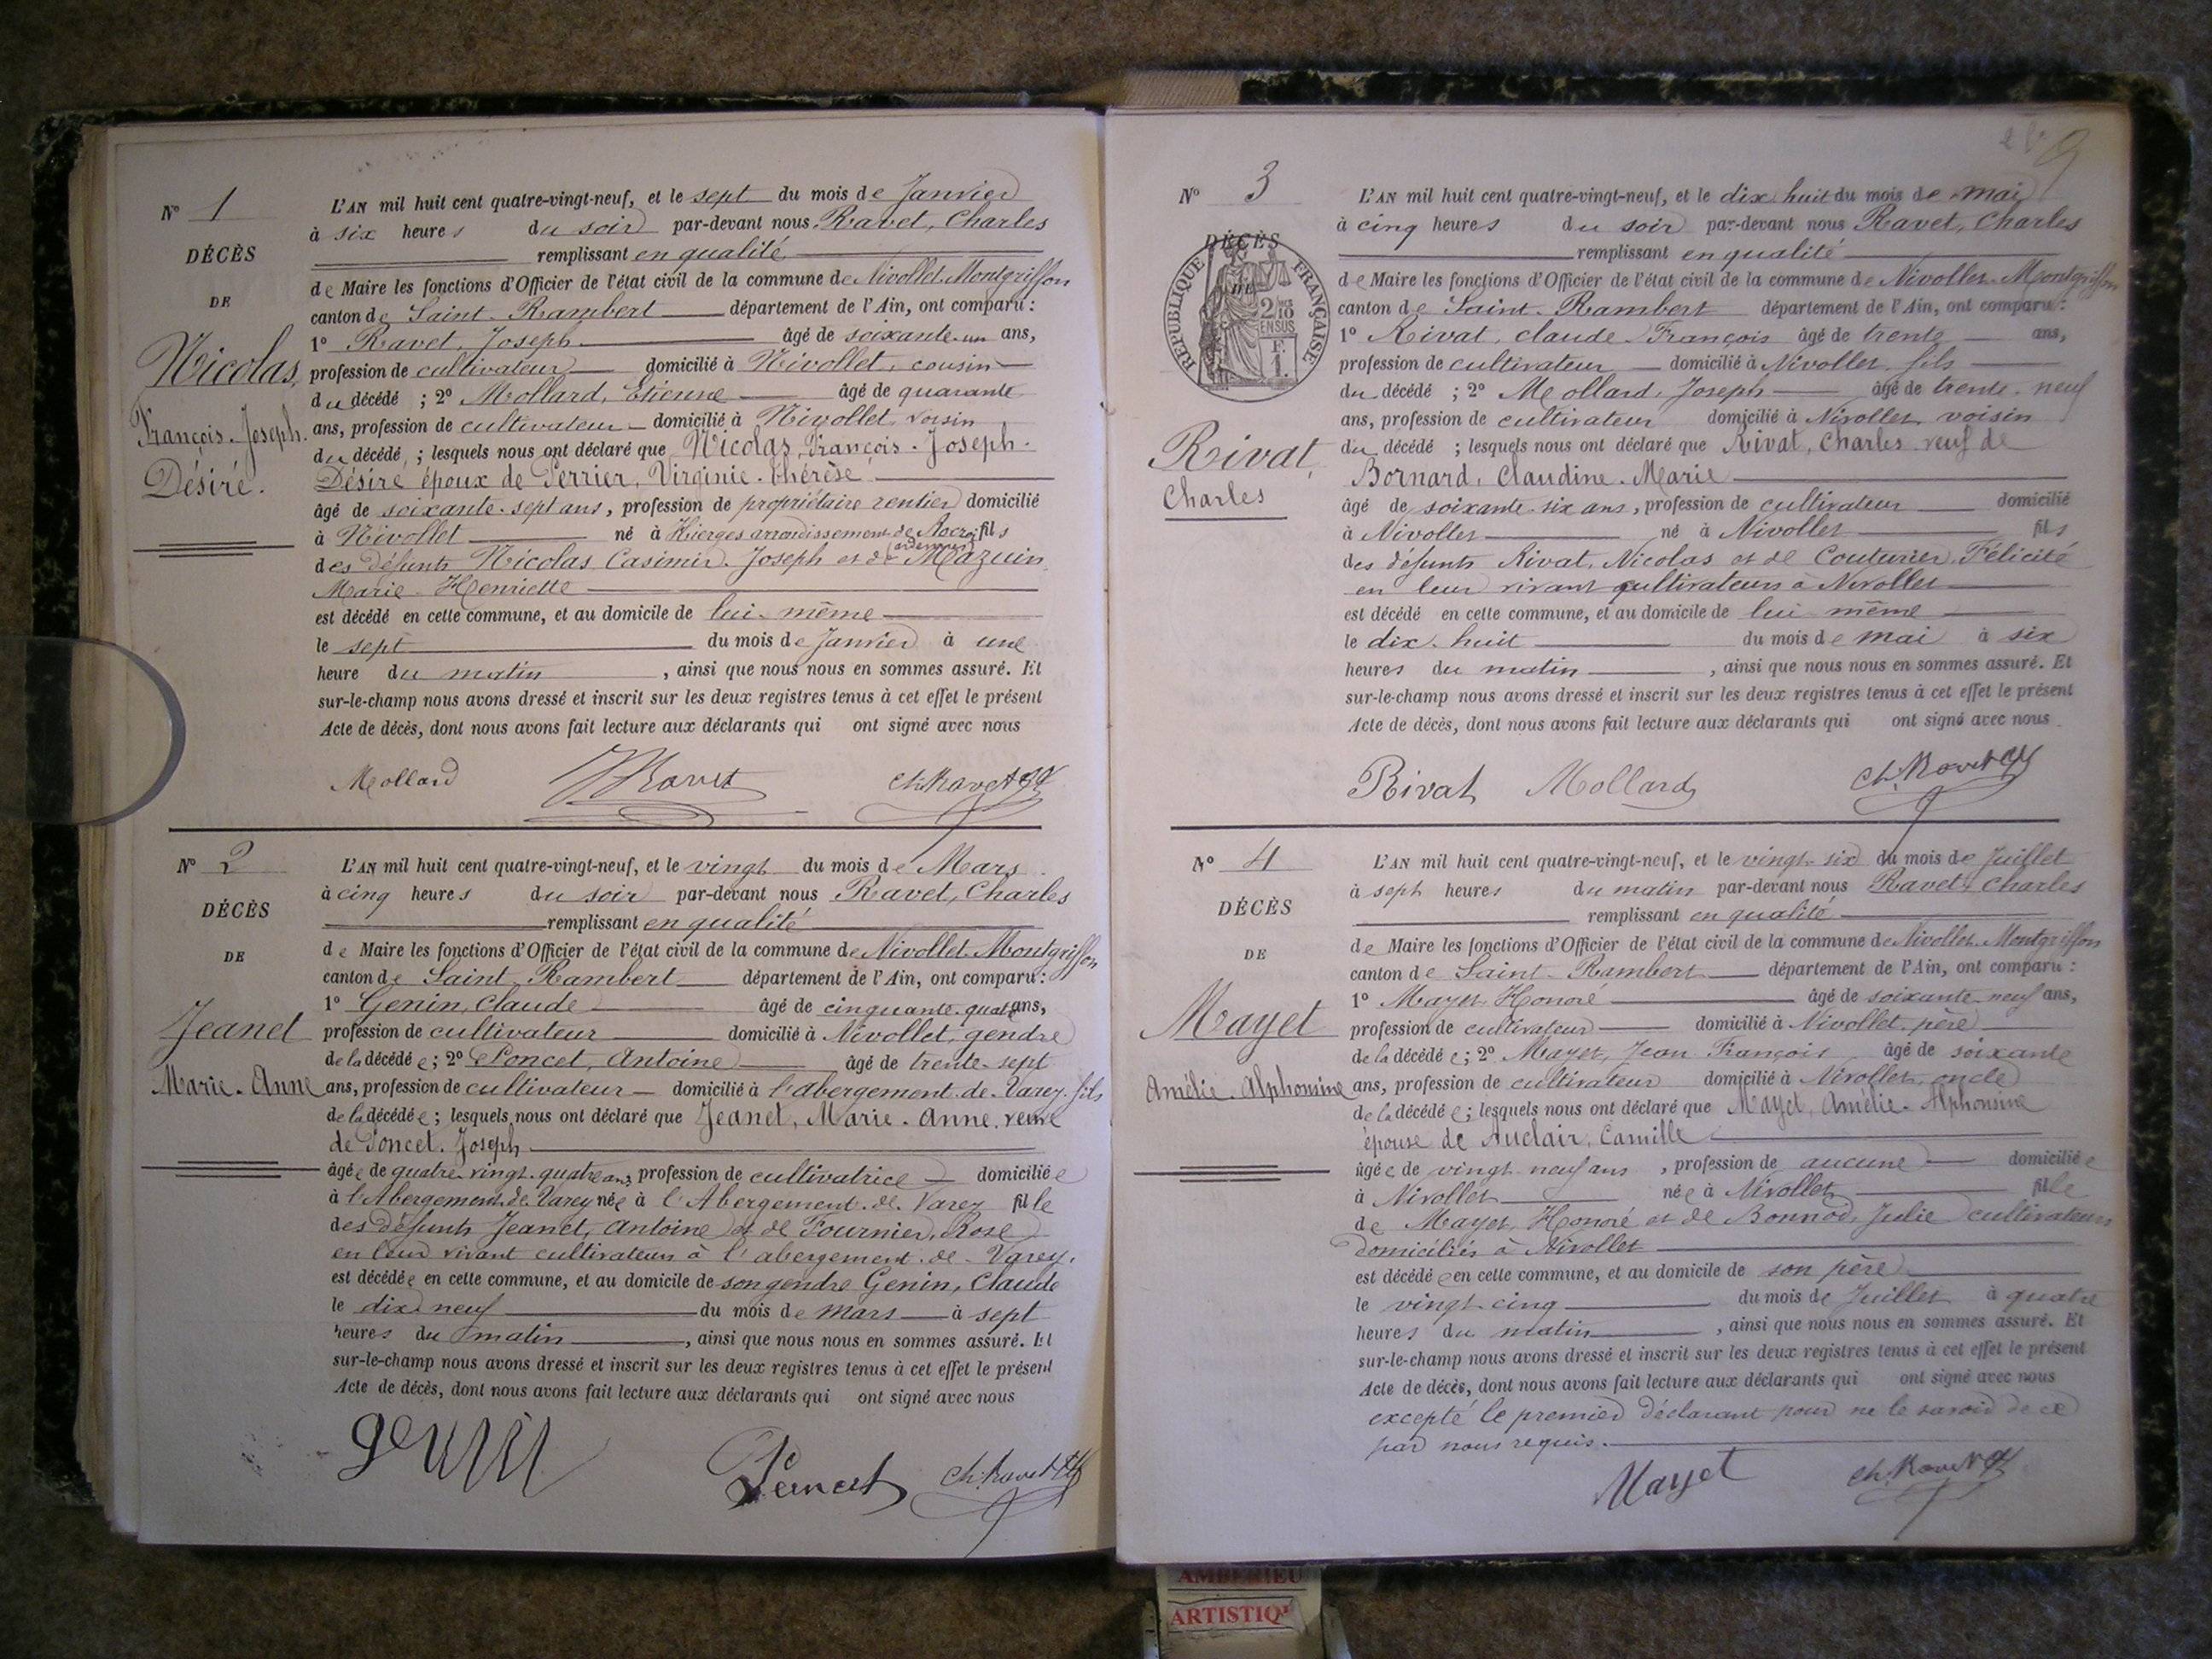 N° 1
DÉCÈS
DE
Nicolas,
François-Joseph.
Désiré.
L'AN mil huit cent quatre-vingt-neuf, et le sept du mois de Janvier
à six heures du soir par-devant nous Ravet, Charles
remplissant en qualité
de Maire les fonctions d'Officier de l'état civil de la commune de Nivollet-Montgriffon
canton de Saint-Rambert département de l'Ain, ont comparu :
1° Ravet, Joseph âgé de soixante-un ans,
profession de cultivateur domicilié à Nivollet, cousin
du décédé ; 2° Mollard, Etienne âgé de quarante
ans, profession de cultivateur domicilié à Nivollet voisin
du décédé ; lesquels nous ont déclaré que Nicolas, François-Joseph-
Désiré époux de Perrier, Virginie-thérèse
âgé de soixante-sept ans, profession de propriétaire rentier domicilié
à Nivollet né à Hierges arrondissement de Rocroi fils
(ardennes)
des défunts Nicolas Casimir-Joseph et de Mazuin
Marie-Henriette
est décédé en cette commune, et au domicile de lui-même
le sept du mois de Janvier à une
heure du matin , ainsi que nous nous en sommes assuré. Et
sur-le-champ nous avons dressé et inscrit sur les deux registres tenus à cet effet le présent
Acte de décès, dont nous avons fait lecture aux déclarants qui ont signé avec nous
Mollard JRavet ch. Ravet
N° 2
DÉCÈS
DE
Jeanet
Marie-Anne
L'AN mil huit cent quatre-vingt-neuf, et le vingt du mois de Mars
à cinq heures du soir par-devant nous Ravet, Charles
remplissant en qualité
de Maire les fonctions d'Officier de l'état civil de la commune de Nivollet-Montgriffon
canton de Saint-Rambert département de l'Ain, ont comparu :
1° Genin, Claude âgé de cinquante-quatre ans,
profession de cultivateur domicilié à Nivollet, gendre
de la décédée ; 2° Poncet, Antoine âgé de trente-sept
ans, profession de cultivateur domicilié à l'abergement-de-Varey, fils
de la décédée ; lesquels nous ont déclaré que Jeanet, Marie-Anne, veuve
de Poncet, Joseph
âgée de quatre-vingt-quatre ans, profession de cultivatrice domiciliée
à l'Abergement-de-Varey née à l'Abergement-de-Varey fille
des défunts Jeanet, Antoine et de Fournier, Rose
en leur vivant cultivateurs à l'abergement-de-Varey,
est décédée en cette commune, et au domicile de son gendre Genin, Claude
le dix-neuf du mois de Mars à sept
heures du matin , ainsi que nous nous en sommes assuré. Et
sur-le-champ nous avons dressé et inscrit sur les deux registres tenus à cet effet le présent
Acte de décès, dont nous avons fait lecture aux déclarants qui ont signé avec nous
genin Poncet ch. Ravet
9
N° 3
DÉCÈS
DE
RÉPUBLIQUE FRANÇAISE
2/10
EN SUS
F.
1.
Rivat,
Charles
L'AN mil huit cent quatre-vingt-neuf, et le dix-huit du mois de mai
à cinq heures du soir par-devant nous Ravet, Charles
remplissant en qualité
de Maire les fonctions d'Officier de l'état civil de la commune de Nivollet-Montgriffon
canton de Saint-Rambert département de l'Ain, ont comparu :
1° Rivat, claude-François âgé de trente ans,
profession de cultivateur domicilié à Nivollet, fils
du décédé ; 2° Mollard, Joseph âgé de trente-neuf
ans, profession de cultivateur domicilié à Nivollet, voisin
du décédé ; lesquels nous ont déclaré que Rivat, charles veuf de
Bornard, Claudine-Marie
âgé de soixante-six ans, profession de cultivateur domicilié
à Nivollet né à Nivollet fils
des défunts Rivat, Nicolas et de Couturier, Félicité
en leur vivant cultivateurs à Nivollet
est décédé en cette commune, et au domicile de lui-même
le dix-huit du mois de mai à six
heures du matin , ainsi que nous nous en sommes assuré. Et
sur-le-champ nous avons dressé et inscrit sur les deux registres tenus à cet effet le présent
Acte de décès, dont nous avons fait lecture aux déclarants qui ont signé avec nous
Rivat Mollard ch. Ravet
N° 4
DÉCÈS
DE
Mayet
Amélie-Alphonsine
L'AN mil huit cent quatre-vingt-neuf, et le vingt-six du mois de Juillet
à sept heures du matin par-devant nous Ravet, Charles
remplissant en qualité
de Maire les fonctions d'Officier de l'état civil de la commune de Nivollet-Montgriffon
canton de Saint-Rambert département de l'Ain, ont comparu :
1° Mayet, Honoré âgé de soixante-neuf ans,
profession de cultivateur domicilié à Nivollet, père
de la décédée ; 2° Mayet, Jean François âgé de soixante
ans, profession de cultivateur domicilié à Nivollet, oncle
de la décédée ; lesquels nous ont déclaré que Mayet, Amélie-Alphonsine
épouse de Auclair, Camille
âgée de vingt-neuf ans , profession de aucune domiciliée
à Nivollet née à Nivollet fille
de Mayet, Honoré et de Bonnod, Julie cultivateurs
domiciliés à Nivollet
est décédée en cette commune, et au domicile de son père
le vingt-cinq du mois de Juillet à quatre
heures du matin , ainsi que nous nous en sommes assuré. Et
sur-le-champ nous avons dressé et inscrit sur les deux registres tenus à cet effet le présent
Acte de décès, dont nous avons fait lecture aux déclarants qui ont signé avec nous
excepté le premier déclarant pour ne le savoir de ce
par nous requis.
Mayet ch. Ravet
AMBERIEU
ARTISTIQU